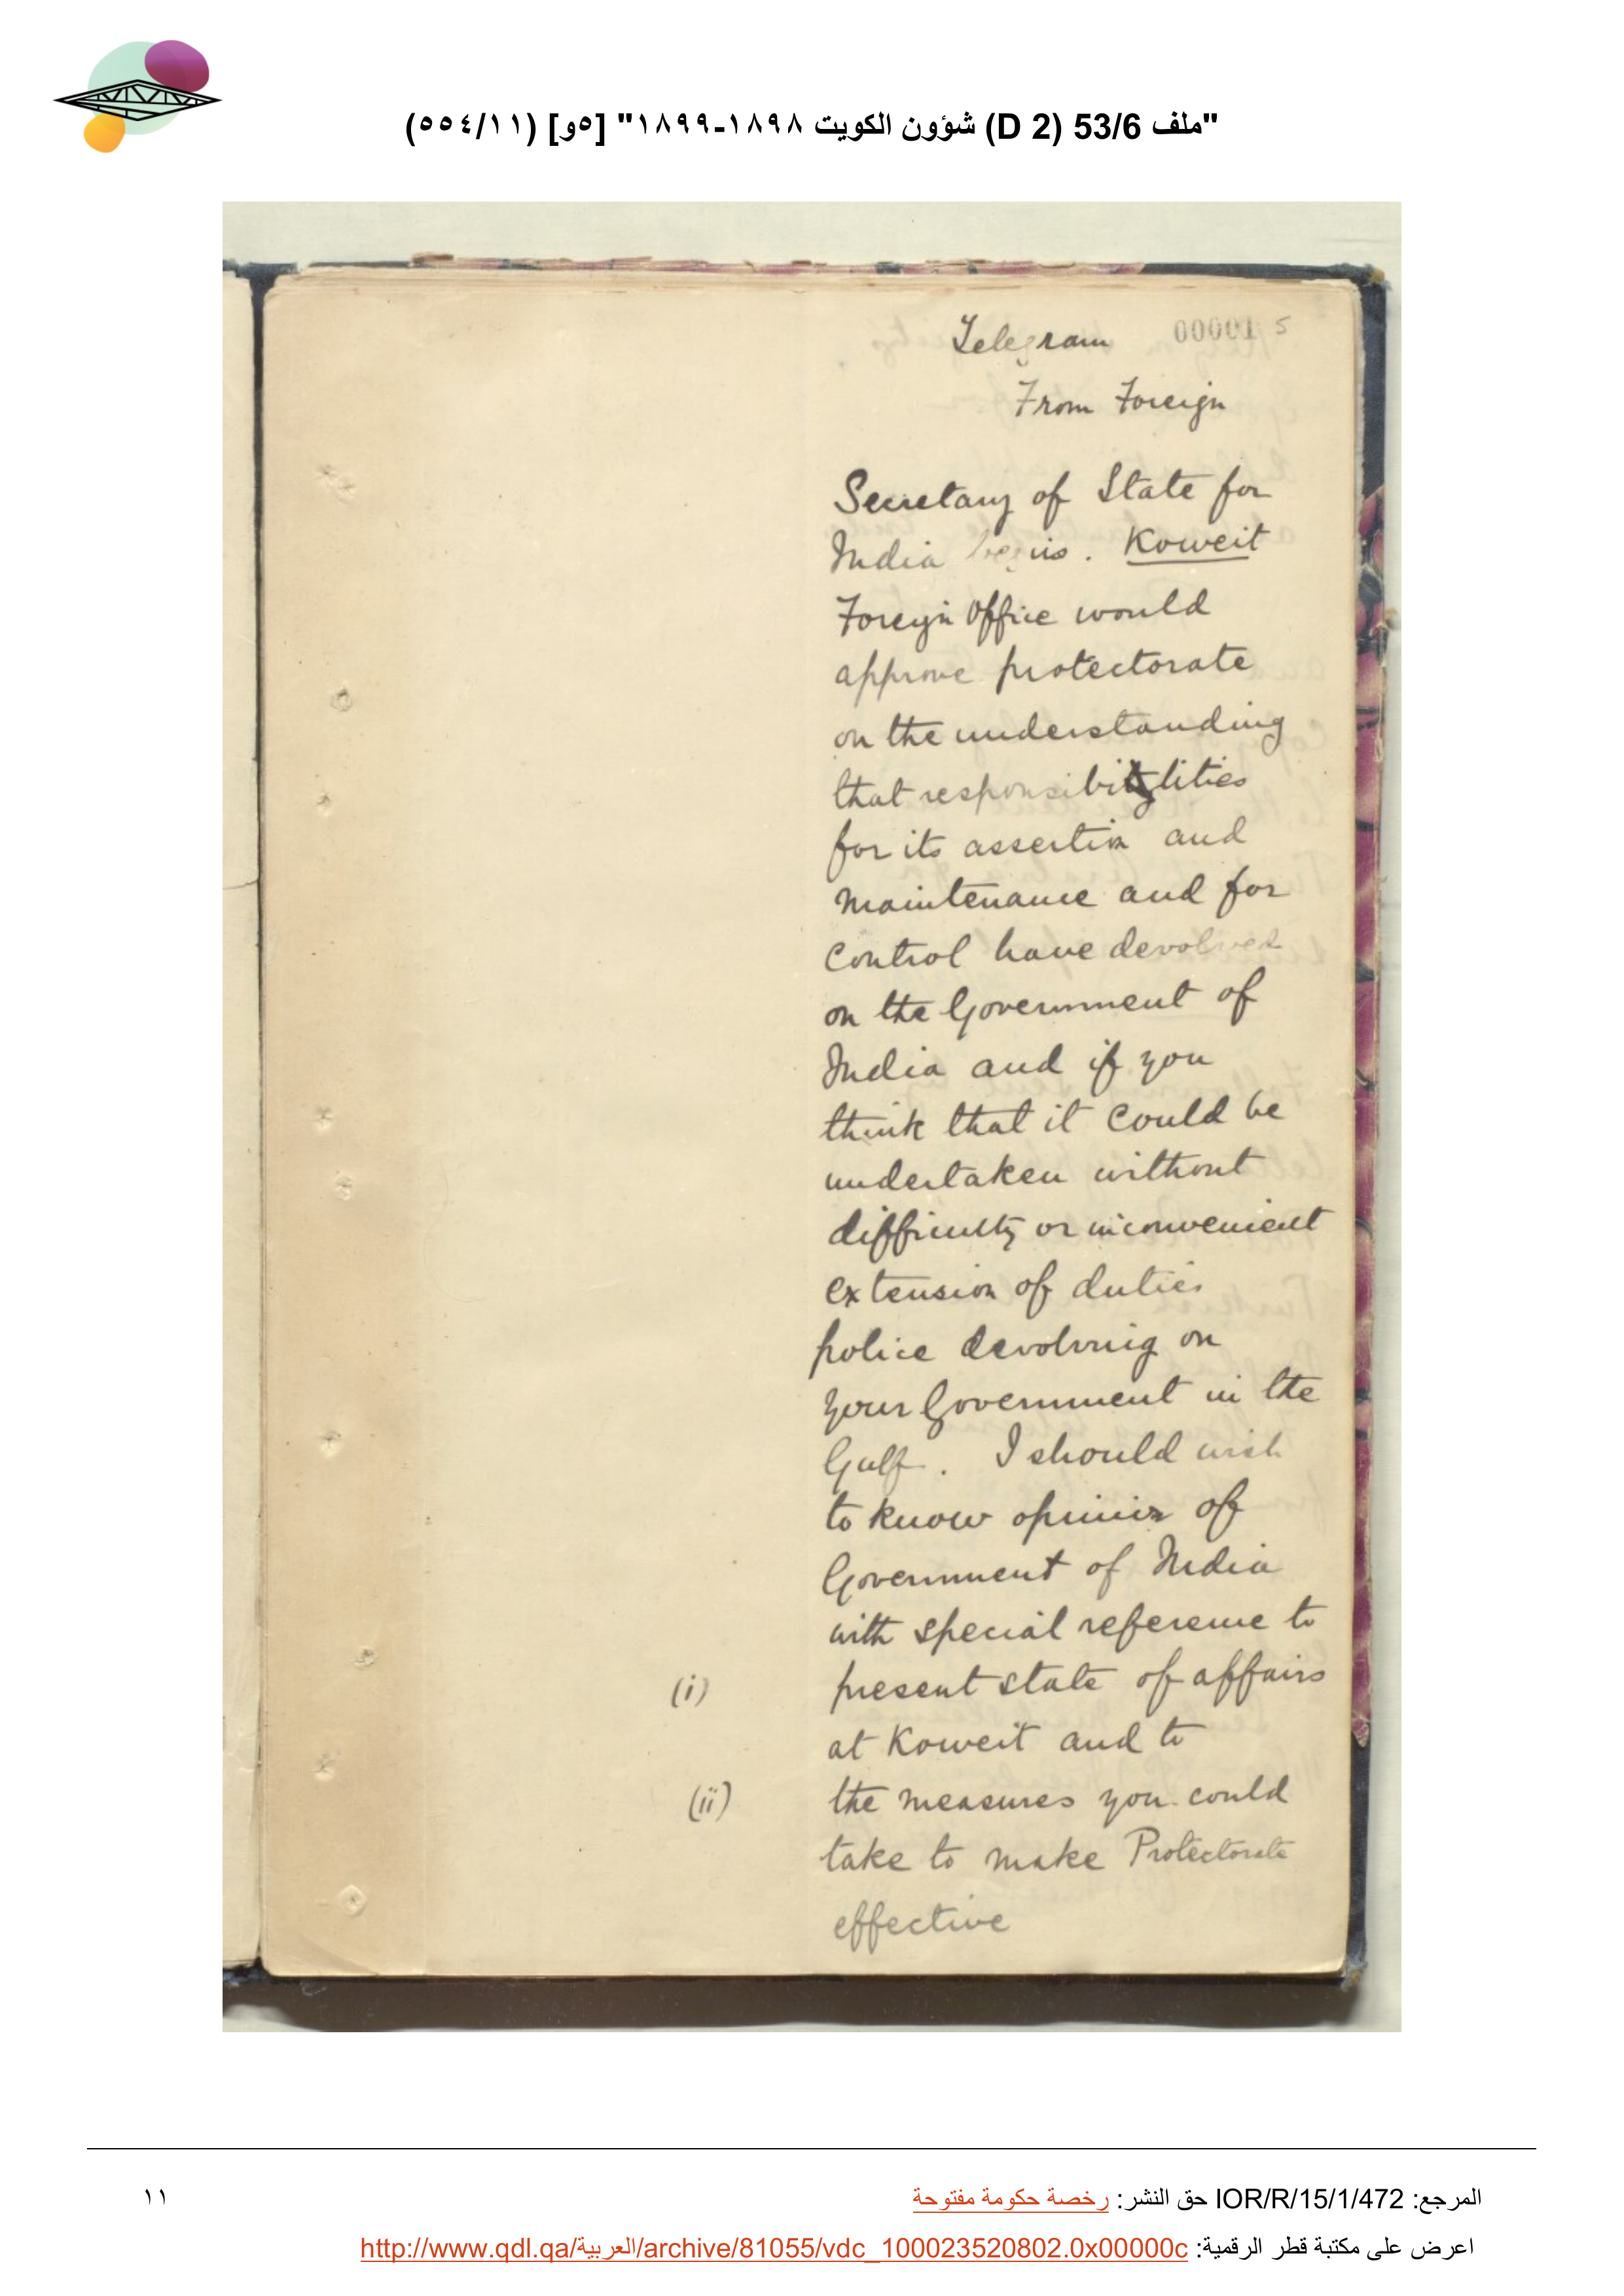 "ملف 53/6 (D 2) شؤون الكويت ١٨٩٨-١٨٩٩" [٥و] (٥٥٤/١١)
Telegram 00001 5
From Foreign
Secretary of State for
India begins. Koweit
Foreign Office would
approve protectorate
on the understanding
that responsibilities
for its assertion and
maintenance and for
control have devolved
on the Government of
India and if you
think that it could be
undertaken without
difficulty or inconvenient
extension of duties
police devolving on
your Government in the
Gulf. I should wish
to know opinion of
Government of India
with special reference to
(i) present state of affairs
at Koweit and to
(ii) the measures you could
take to make Protectorate
effective
المرجع: IOR/R/15/1/472 حق النشر: رخصة حكومة مفتوحة
١١
اعرض على مكتبة قطر الرقمية: http://www.qdl.qa/العربية/archive/81055/vdc_100023520802.0x00000c